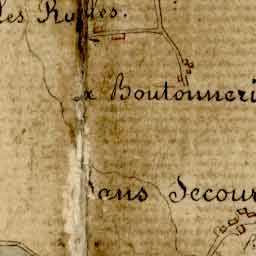 les Rulles.
Boutonneri
Sans Secour